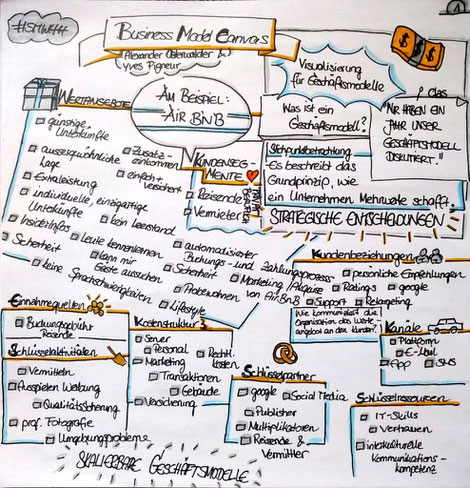 #ISMWHH
1
Business Model Canvas
Alexander Osterwalder &
Yves Pigneur
Visualisierung
für Geschäftsmodelle
Wertangebote
Am Beispiel:
Air BNB
Was ist ein
Geschäftsmodell?
"Wir haben ein
Jahr unser
Geschäftsmodell
diskutiert."
- Es beschreibt das
Grundprinzip, wie
ein Unternehmen Mehrwerte schafft.
Strategische Entscheidungen
günstige
Unterkünfte
aussergewöhnliche
Lage
Extraleistung
individuelle, einzigartige
Unterkünfte
InsiderInfos
Sicherheit
keine Sprachschwierigkeiten
Zusatz-
einkommen
einfach +
versichert
kein Leerstand
Leute kennenlernen
kann mir
Gäste aussuchen
automatisierter
Buchungs- und Zahlungsprozess
Sicherheit
Marketing / Akquise
von AirBNB
Probewohnen
Lifestyle
Kundenseg-
mente
Reisende
Vermieter
Kundenbeziehungen
persönliche Empfehlungen
Ratings
google
Support
Retargeting
Wie kommuniziert die
Organisation das Werte-
angebot an den Kunden?
Kanäle
Plattform
E-Mail
App
SMS
Einnahmequellen
Buchungsgebühr
Reisende
Schlüsselaktivitäten
Vermitteln
Ausspielen Werbung
Qualitätssicherung
prof. Fotografie
Umgebungsprobleme
Kostenstruktur
Server
Personal
Marketing
Rechtl.
kosten
Transaktionen
Gebäude
Versicherung
Schlüsselpartner
google
Social Media
Publisher
Multiplikatoren
Reisende &
Vermittler
Schlüsselressourcen
IT-Skills
Vertrauen
interkulturelle
Kommunikations-
kompetenz
Skalierbare Geschäftsmodelle